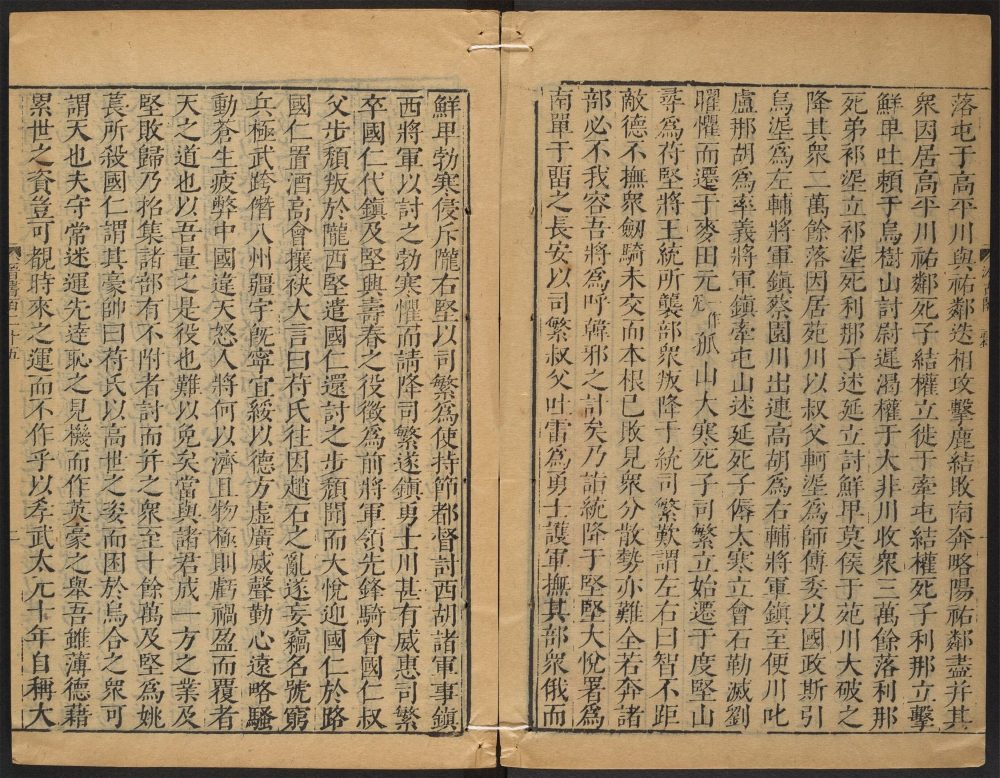 落屯于高平川與祐鄰迭相攻擊鹿結敗南奔略陽祐鄰盡并其
衆因居高平川祐鄰死子結權立徙于牽屯結權死子利那立擊
鮮卑吐頼于烏樹山討尉遲渴權于大非川收衆三萬餘落利那
死弟祁埿立祁埿死利那子述延立討鮮卑莫侯于苑川大破之
降其衆二萬餘落因居苑川以叔父軻埿爲師傅委以國政斯引
烏埿爲左輔將軍鎮蔡園川出連高胡爲右輔將軍鎮至便川叱
盧那胡爲率義將軍鎮牽屯山述延死子傉大寒立會石勒滅劉
曜懼而遷于麥田元作孤山大寒死子司繁立始遷于度堅山
尋爲苻堅將王統所襲部衆叛降于統司繁歎謂左右曰智不距
敵德不撫衆劒騎未交而本根已敗見衆分散勢亦難全若奔諸
部必不我容吾將爲呼韓邪之計矣乃詣統降于堅堅大悅署爲
南單于畱之長安以司繁叔父吐雷爲勇士護軍撫其部衆俄而
鮮卑勃寒侵斥隴右堅以司繁爲使持節都督討西胡諸軍事鎮
西將軍以討之勃寒懼而請降司繁遂鎮勇士川甚有威惠司繁
卒國仁代鎮及堅興壽春之役徵爲前將軍領先鋒騎會國仁叔
父步頹叛於隴西堅遣國仁還討之步頹聞而大悅迎國仁於路
國仁置酒高會攘袂大言曰苻氏往因趙石之亂遂妄竊名號窮
兵極武跨僭八州疆宇旣寧宜綏以德方虛廣威聲勤心遠略騷
動蒼生疲弊中國違天怒人將何以濟且物極則虧禍盈而覆者
天之道也以吾量之是役也難以免矣當與諸君成一方之業及
堅敗歸乃招集諸部有不附者討而并之衆至十餘萬及堅爲姚
萇所殺國仁謂其豪帥曰苻氏以高世之姿而困於烏合之衆可
謂天也夫守常迷運先達恥之見機而作英豪之舉吾雖薄德藉
累世之資豈可覩時來之運而不作乎以孝武太元十年自稱大